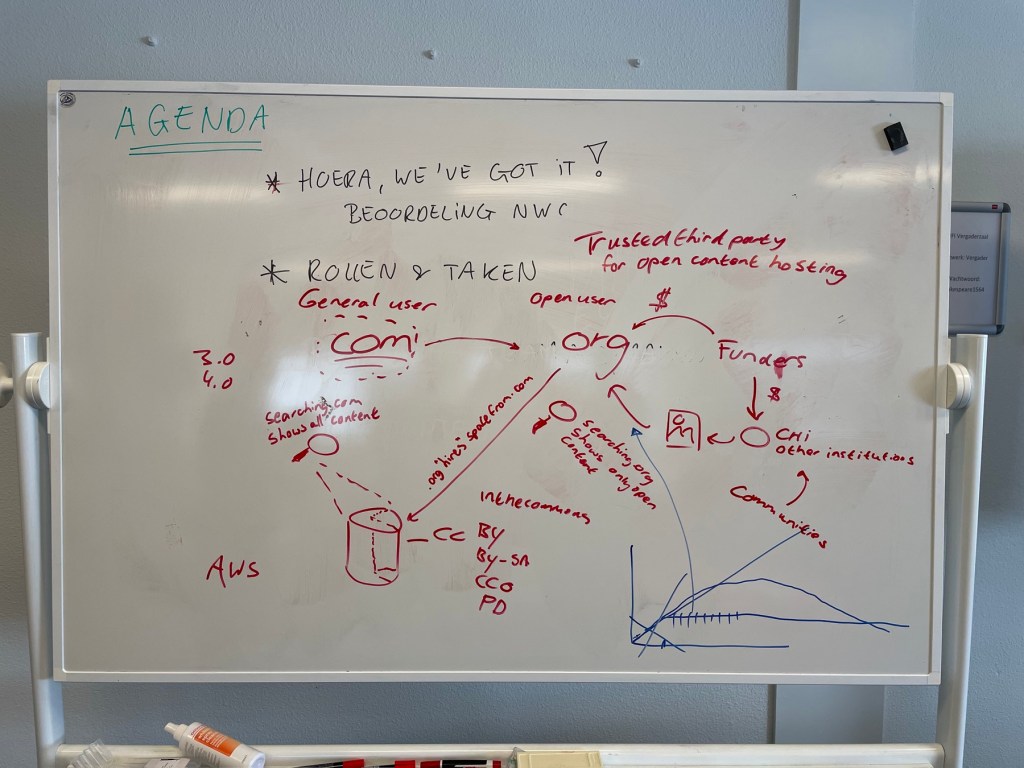 AGENDA
* HOERA, WE'VE GOT IT!
BEOORDELING NWC
Trusted third party
for open content hosting
* ROLLEN & TAKEN
General user
open user
$
.com
.org
Funders
$
3.0
4.0
searching.com
shows all content
.org "hires" space from .com
searching.org
shows only open
content
CHI
other institutions
Communities
inthecommons
CC
BY
BY-SA
CC0
PD
AWS